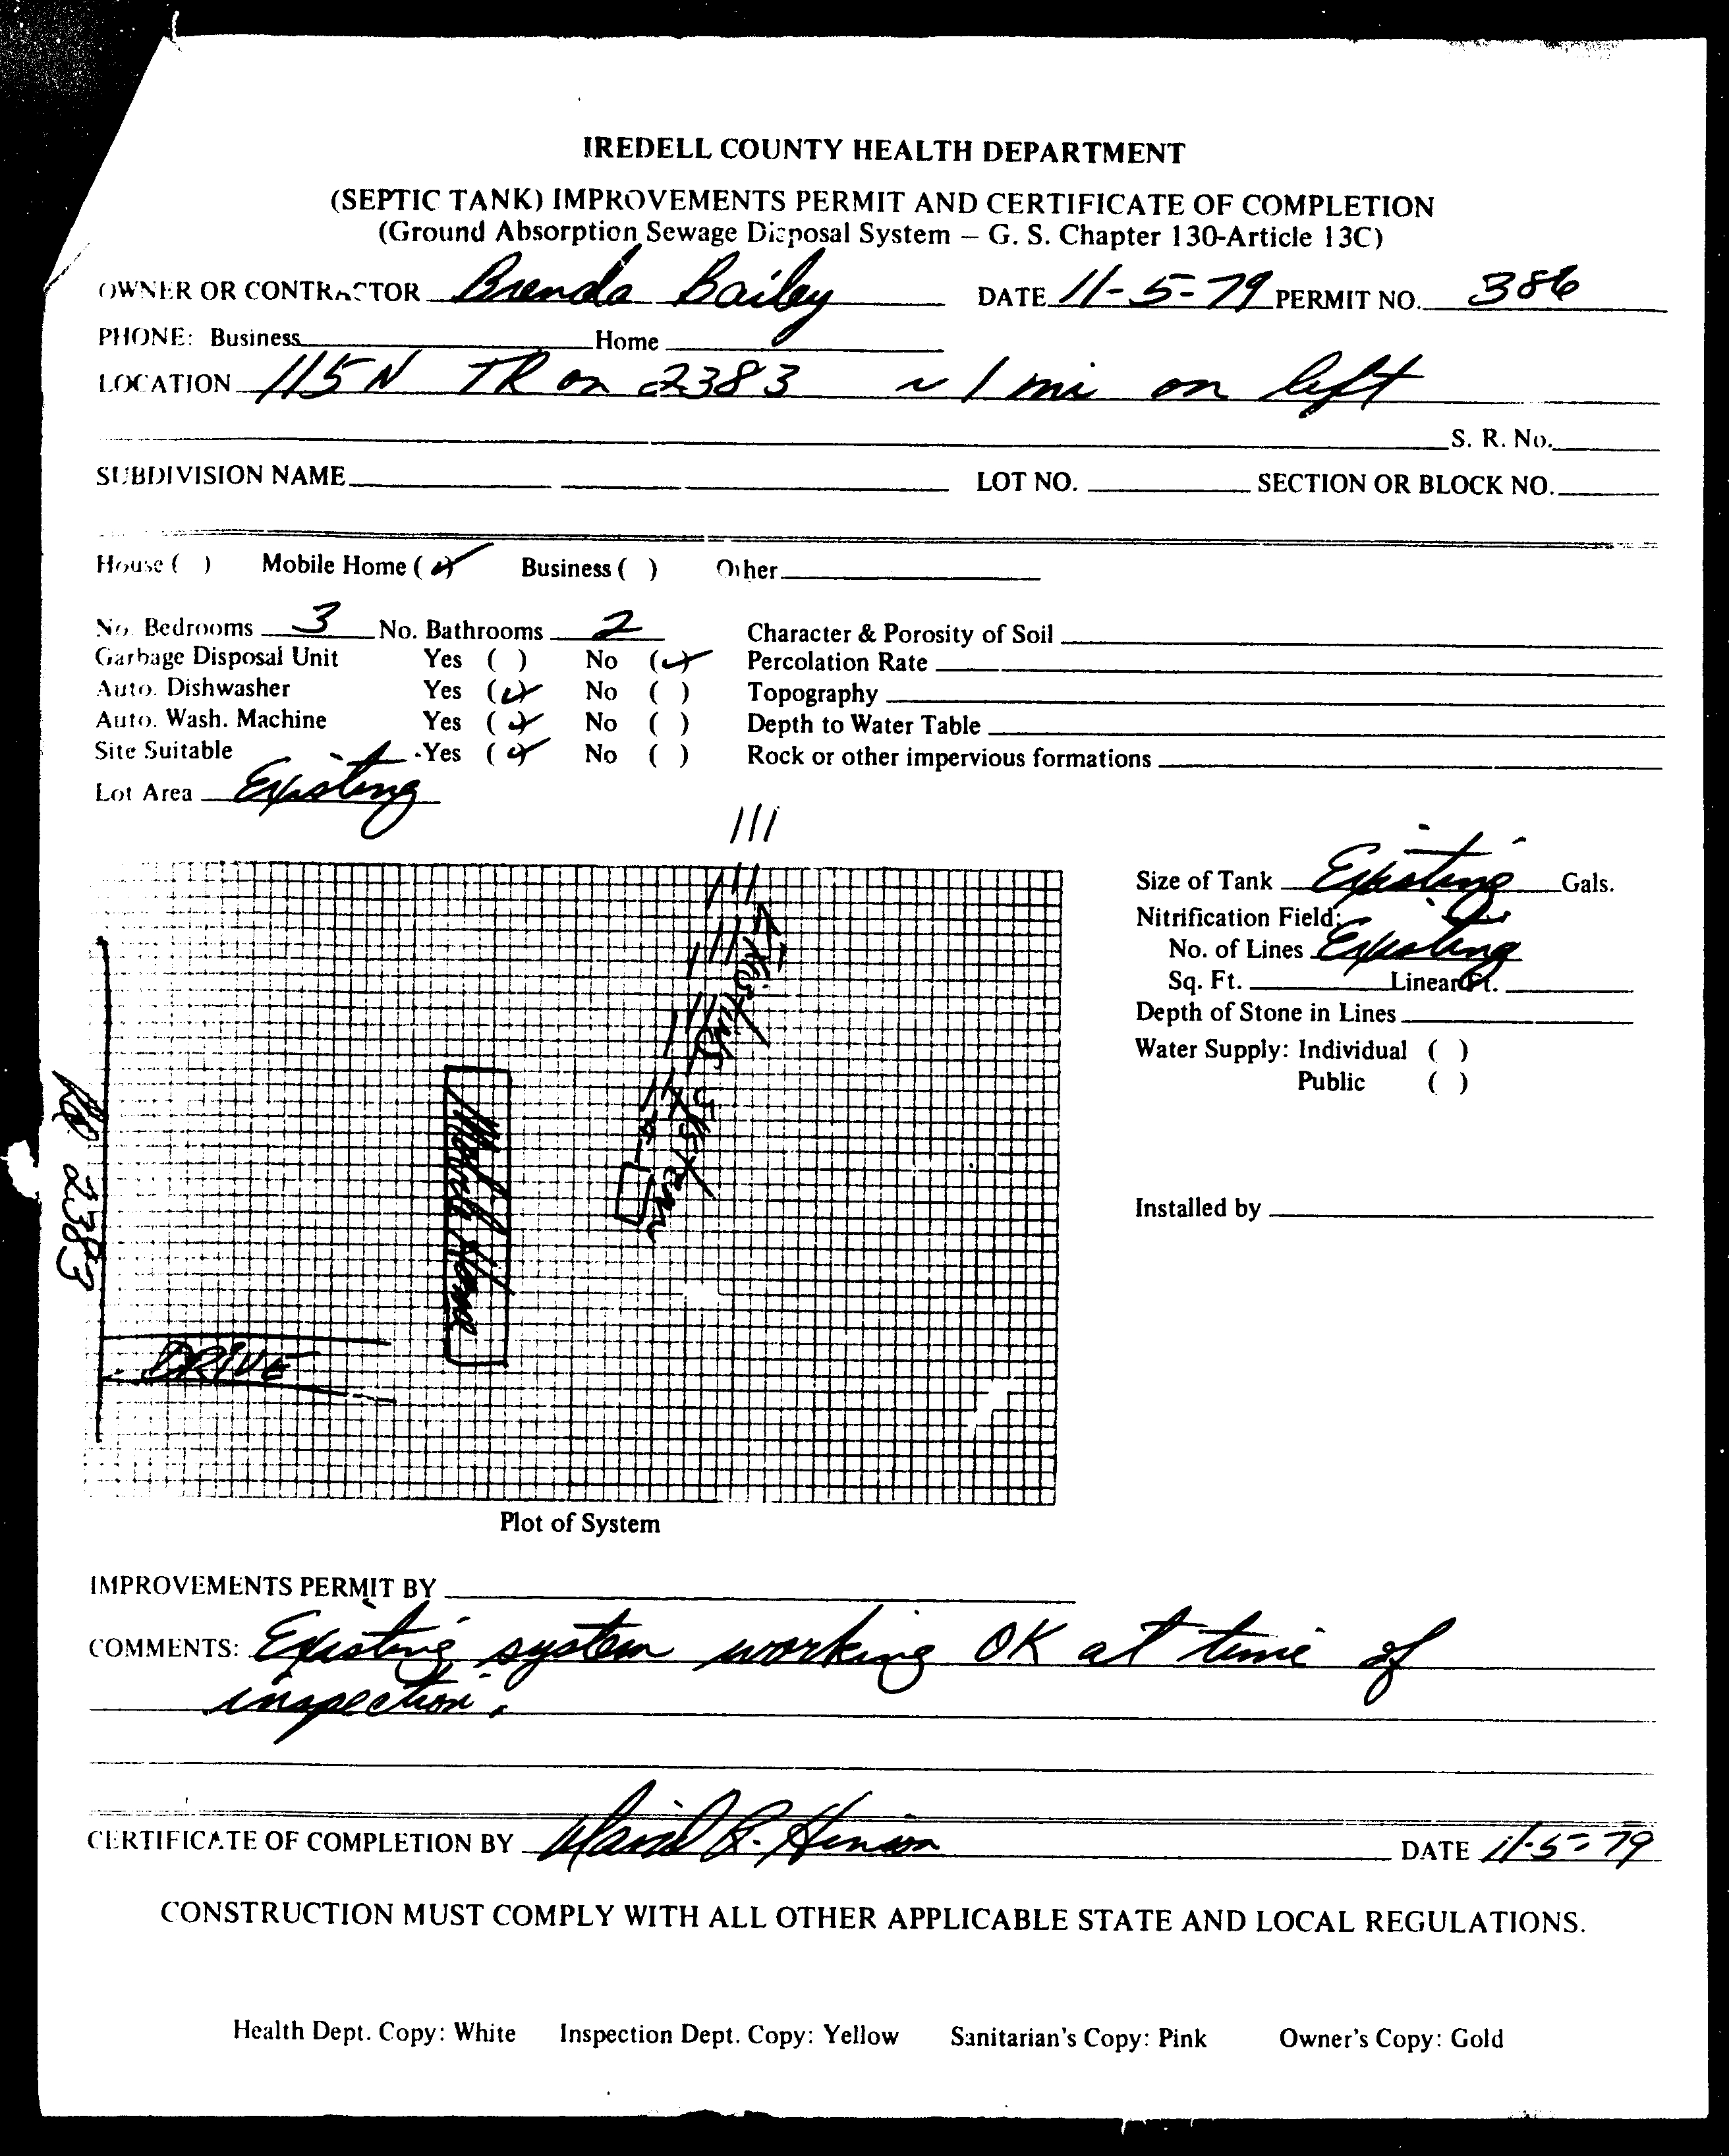 IREDELL COUNTY HEALTH DEPARTMENT
(SEPTIC TANK) IMPROVEMENTS PERMIT AND CERTIFICATE OF COMPLETION
(Ground Absorption Sewage Disposal System – G. S. Chapter 130-Article 13C)
OWNER OR CONTRACTOR Brenda Bailey DATE 11-5-79 PERMIT NO. 386
PHONE: Business Home
LOCATION 115 N TR on 2383 ~ 1 mi on left
S. R. No.
SUBDIVISION NAME LOT NO. SECTION OR BLOCK NO.
House ( ) Mobile Home (✓) Business ( ) Other
No. Bedrooms 3 No. Bathrooms 2 Character & Porosity of Soil
Garbage Disposal Unit Yes ( ) No (✓) Percolation Rate
Auto. Dishwasher Yes (✓) No ( ) Topography
Auto. Wash. Machine Yes (✓) No ( ) Depth to Water Table
Site Suitable Yes (✓) No ( ) Rock or other impervious formations
Lot Area Existing
Size of Tank Existing Gals.
Nitrification Field:
No. of Lines Existing
Sq. Ft. Linear Ft.
Depth of Stone in Lines
Water Supply: Individual ( )
Public ( )
Installed by
Rd 2383
Mobile Home
Existing System
DRIVE
Plot of System
IMPROVEMENTS PERMIT BY
COMMENTS: Existing system working OK at time of
inspection.
CERTIFICATE OF COMPLETION BY David R. Henson DATE 11-5-79
CONSTRUCTION MUST COMPLY WITH ALL OTHER APPLICABLE STATE AND LOCAL REGULATIONS.
Health Dept. Copy: White Inspection Dept. Copy: Yellow Sanitarian's Copy: Pink Owner's Copy: Gold